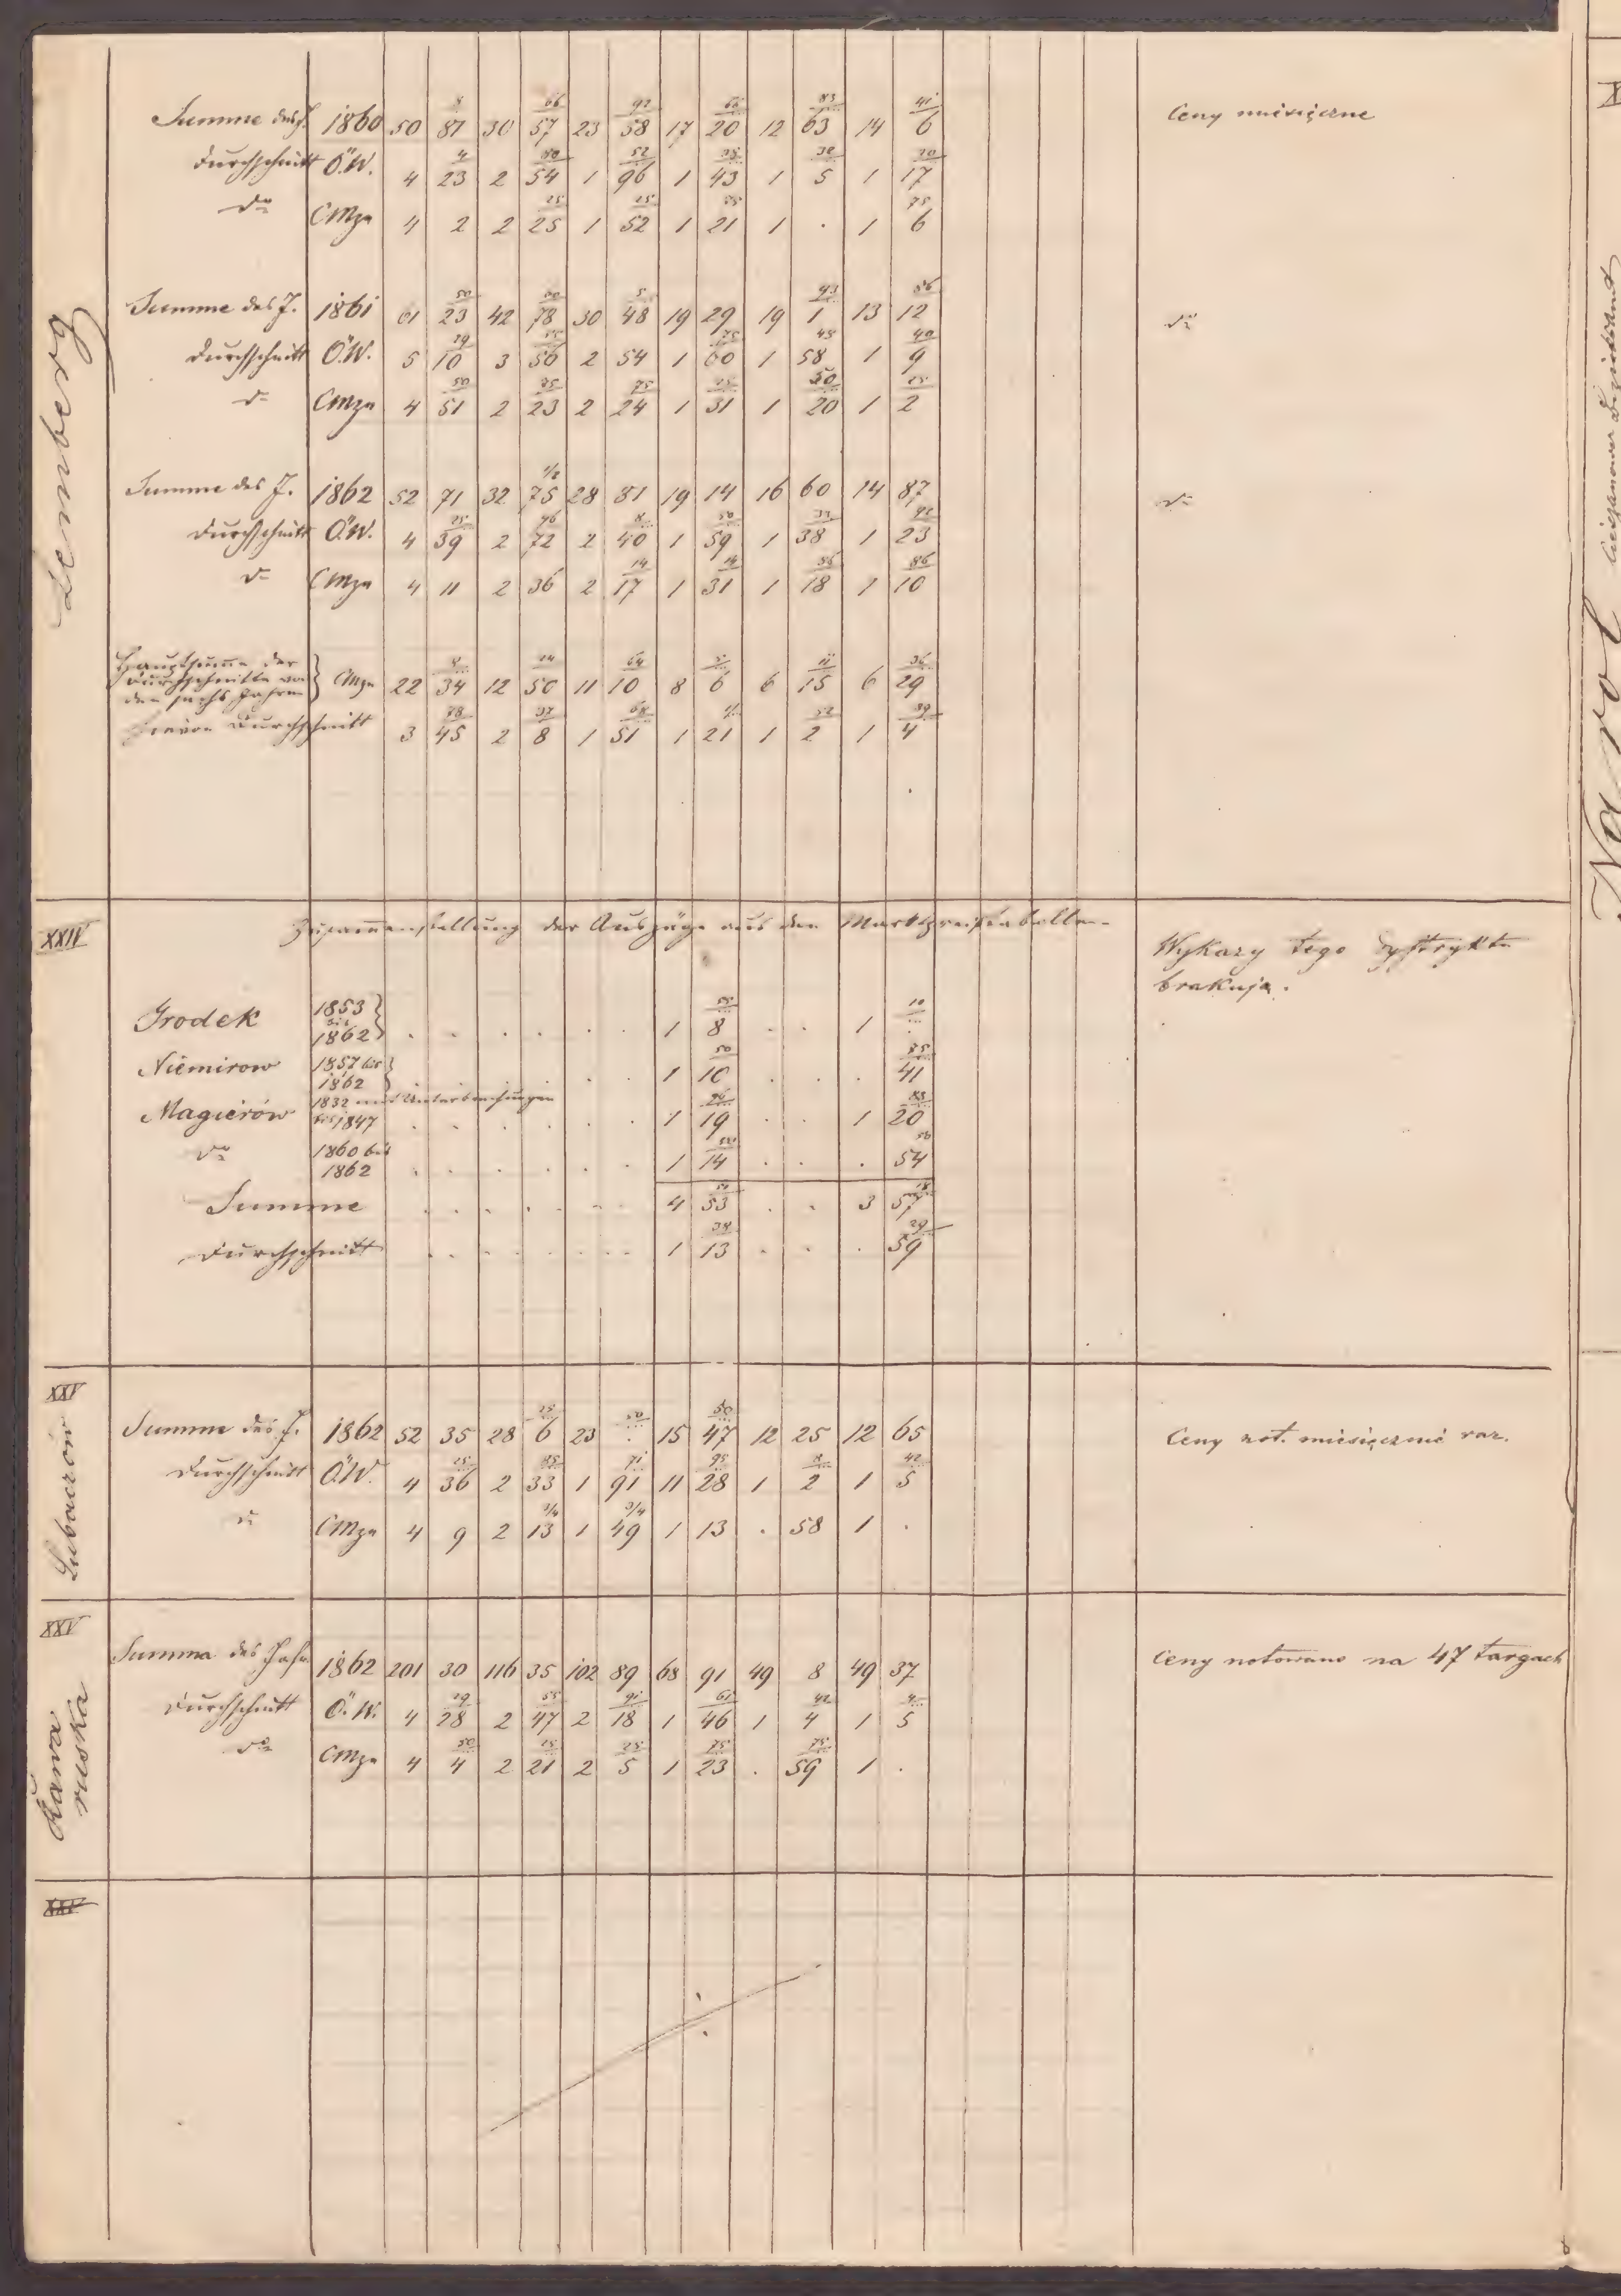 Lemberg
Summe des J. 1860 50 81 30 57 66 23 58 92 17 20 12 63 83 14 6 41 Ceny miesięczne
Durchschnitt Ö.W. 4 23 4 2 54 50 1 96 52 1 43 35 1 5 32 1 17 20
do CMze 4 2 2 25 25 1 52 25 1 21 1 . 1 6 75
Summe des J. 1861 61 23 50 42 78 30 48 5 19 29 19 1 93 13 12 do
Durchschnitt Ö.W. 5 10 29 3 56 2 54 1 60 75 1 58 45 1 9 40
do CMze 4 51 50 2 23 2 24 75 1 31 25 1 20 50 1 2
Summe des J. 1862 52 71 32 75 1/2 28 81 19 14 16 60 14 87 do
Durchschnitt Ö.W. 4 39 25 2 72 96 2 40 8 1 59 50 1 38 33 1 23 92
do CMze 4 11 2 36 2 17 14 1 31 14 1 18 1 10 86
Hauptsumme der
Durchschnitte von
den sechs Jahren CMze 22 34 12 50 11 10 64 8 6 6 15 11 6 29 36
hievon Durchschnitt 3 45 78 2 8 37 1 51 1 21 1 2 52 1 4 39
XXIV Zusammenstellung der Auszüge aus den Marktpreistabellen
Wykazy tego dystryktu
brakują.
Grodek 1853 bis 1862 1 8 55 1 . 10
Niemirow 1857 bis 1862 1 10 50 . 41 85
Magierów 1832 mit Unterbrechungen bis 1847 1 19 1 20
do 1860 bis 1862 1 14 50 . 54 50
Summe 4 53 3 57
Durchschnitt 1 13 38 . 59 29
XXV
Lubaczów
Summe des J. 1862 52 35 28 6 25 23 . 50 15 47 50 12 25 12 65 Ceny not. miesięcznie raz.
Durchschnitt Ö.W. 4 36 25 2 33 85 1 91 71 11 28 95 1 2 8 1 5 42
do CMze 4 9 2 13 3/4 1 49 3/4 1 13 . 58 1 .
XXV
Rawa
ruska
Summa des Jahr 1862 201 30 116 35 102 89 68 91 49 8 49 37 Ceny notowano na 47 targach
Durchschnitt Ö.W. 4 28 29 2 47 55 2 18 91 1 46 61 1 4 42 1 5 4
do CMze 4 4 50 2 21 25 2 5 25 1 23 75 . 59 75 1 .
XXV
Narol